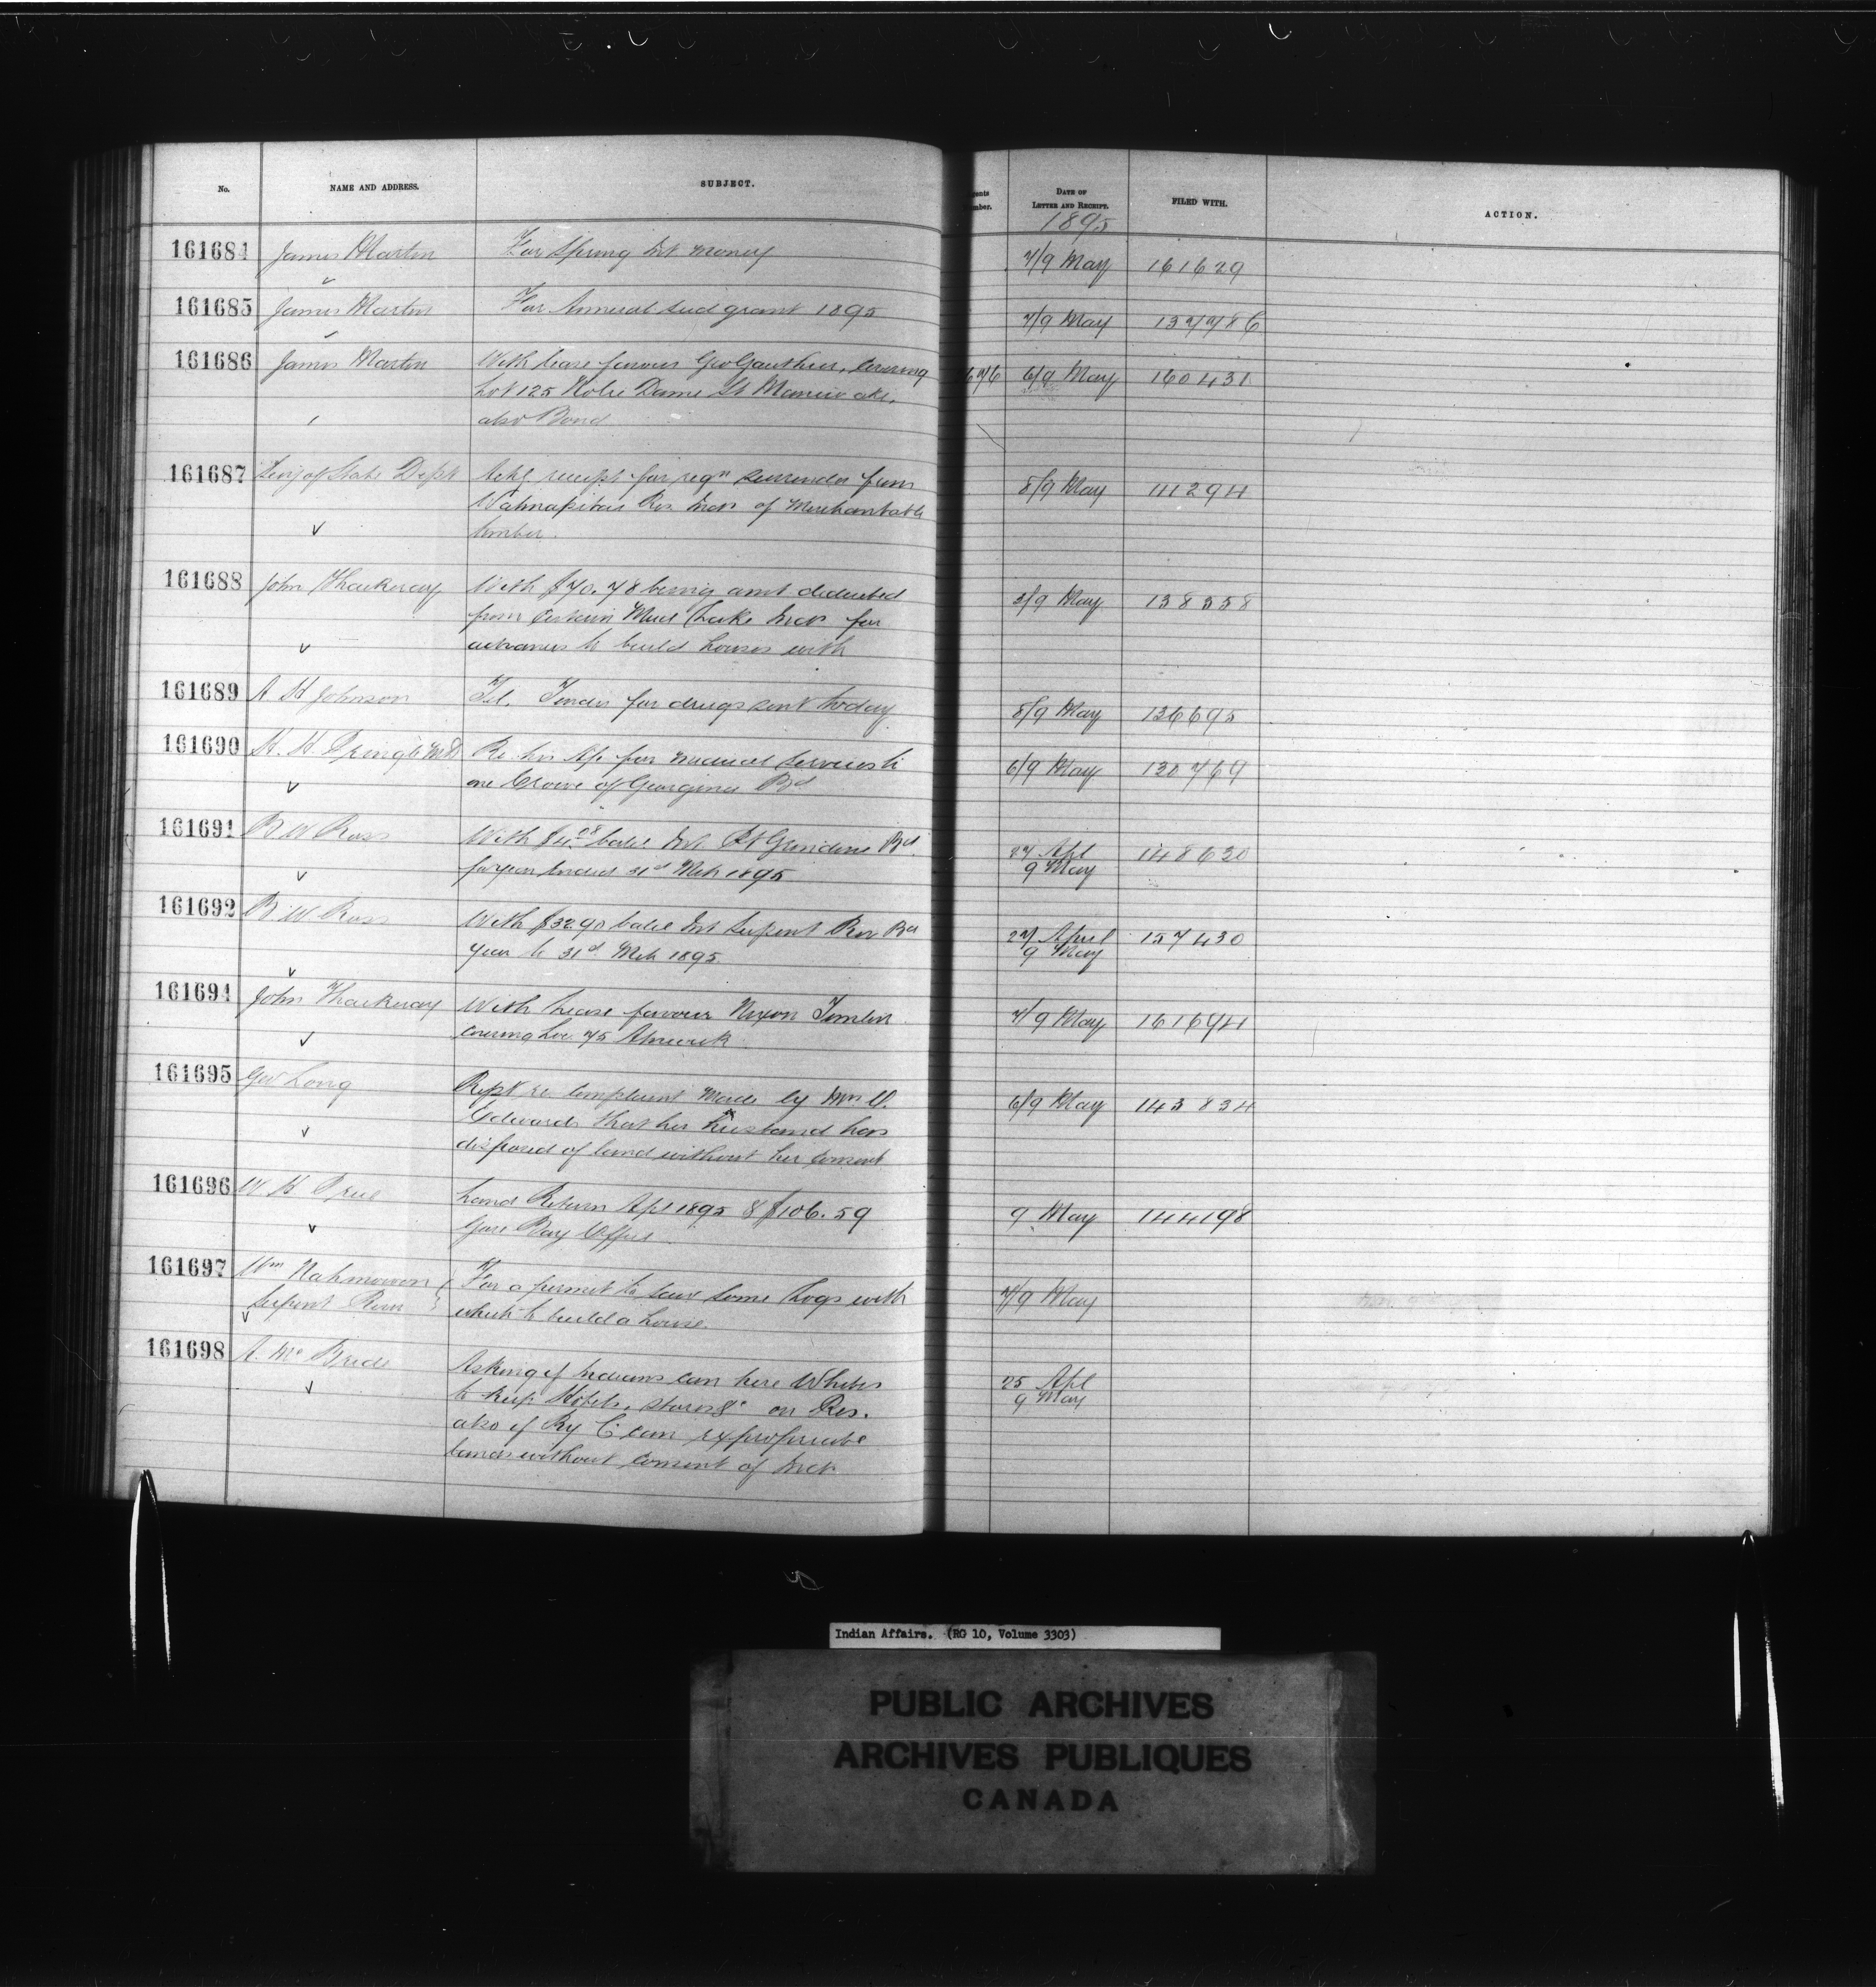 No. NAME AND ADDRESS. SUBJECT. DATE OF LETTER AND RECEIPT. FILED WITH. ACTION.
1895
161684 James Martin For Spring Int money 7/9 May 161629
161685 James Martin For Annual seed grant 1895 7/9 May 137786
161686 James Martin With lease favour Geo Gauthier, covering 676 6/9 May 160431
Lot 125 Notre Dame St Maniwaki,
also Bond
161687 Secy of State Dept Ackg receipt for regn surrender from 8/9 May 111294
Wahnapitae Res Inds of Merchantable
timber.
161688 John Thackeray With $70.78 being amt deducted 8/9 May 138558
from certain Mud Lake Inds for
advances to build houses with
161689 A H Johnson Tel. Tender for drugs sent today 8/9 May 136695
161690 H. H. Pringle MD Re his A/c for medical services to 6/9 May 130769
one of Georgina Bd
161691 B W Ross With $4.08 balce Int 27 Apl 148620
for year ended 31st Mch 1895 9 May
161692 B W Ross With $32.90 balce Int Serpent Rivr Bd 27 April 157430
year to 31st Mch 1895. 9 May
161694 John Thackeray With lease favour Nixon Tomlin 7/9 May 161694
covering Loc. 75 Alnwick
161695 Geo Long Rept re complaint made by Mrs 6/9 May 143834
Edwards that her husband has
disposed of land without her consent
161696 W H Price Land Return Apl 1895 & $106.59 9 May 144198
Gore Bay Office
161697 Wm Nahmowon For a permit to saw some logs with 7/9 May
Serpent River which to build a house.
161698 A. McBride Asking if Indians can hire Whites 25 Apl
to keep Hotels, stores &c on Res. 9 May
also if Ry Co can expropriate
lands without consent of Inds
Indian Affairs. (RG 10, Volume 3303)
PUBLIC ARCHIVES
ARCHIVES PUBLIQUES
CANADA